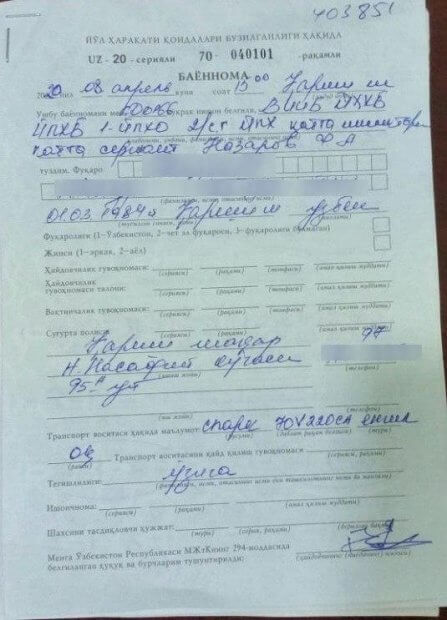 403851
ЙЎЛ ҲАРАКАТИ ҚОИДАЛАРИ БУЗИЛГАНЛИГИ ҲАҚИДА
UZ - 20 - серияли 70 - 040101 -рақамли
БАЁННОМА
2020 йил 08 апрель куни соат 15 00 Қарши ш
Ушбу баённомани кўкрак нишон белгили, ВИИБ ЙҲХБ
қатта сержант Назаров Ф А
туздим. Фуқаро
(фамилияси, исми, отасининг исми)
01.03 1984й Қарши ш ўзбек
(туғилган санаси, жойи) (миллати)
Фуқаролиги (1–Ўзбекистон, 2–чет эл фуқароси, 3–фуқаролиги бўлмаган)
Жинси (1–эркак, 2–аёл)
Ҳайдовчилик гувоҳномаси:
(серияси) (рақами) (тоифаси) (амал қилиш муддати)
Ҳайдовчилик
гувоҳномаси талони:
(серияси) (рақами) (тоифаси) (амал қилиш муддати)
Вақтинчалик гувоҳнома:
(серияси) (рақами) (тоифаси) (амал қилиш муддати)
Суғурта полиси:
(серияси) (рақами) (амал қилиш муддати)
Қарши шаҳар
Н. Насафий кўчаси
(яшаш жойи) (телефон)
95А уй
(иш жойи) (телефон)
Транспорт воситаси ҳақида маълумот: спарк 70V220СА енгил
(русуми) (давлат рақам белгиси) (тури)
оқ Транспорт воситасини қайд қилиш гувоҳномаси
(ранги) (серияси, рақами)
Тегишлилиги: ўзига
Ишончнома:
(серияси) (рақами) (амал қилиш муддати)
Шахсини тасдиқловчи ҳужжат:
(тури) (серия, рақами) (берилган вақти)
Менга Ўзбекистон Республикаси МЖтКнинг 294-моддасида
белгиланган ҳуқуқ ва бурчларим тушунтирилди.